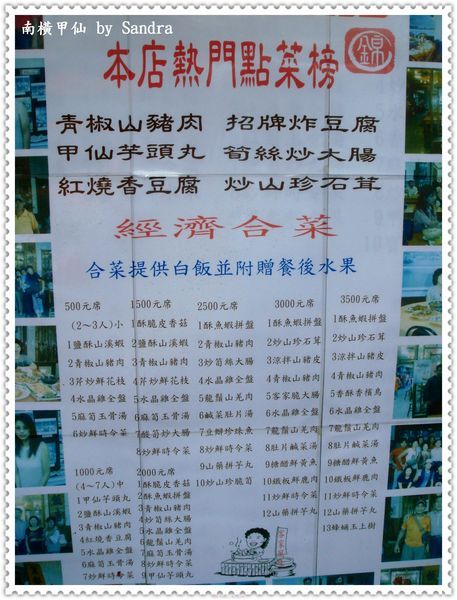 南橫甲仙 by Sandra
本店熱門點菜榜
青椒山豬肉 招牌炸豆腐
甲仙芋頭丸 筍絲炒大腸
紅燒香豆腐 炒山珍石茸
經濟合菜
合菜提供白飯並附贈餐後水果
500元席
(2~3人)小
1鹽酥山溪蝦
2青椒山豬肉
3芹炒鮮花枝
4水晶雞全盤
5麻筍玉骨湯
6炒鮮時令菜
1000元席
(4~7人)中
1甲仙芋頭丸
2鹽酥山溪蝦
3青椒山豬肉
4紅燒香豆腐
5水晶雞全盤
6麻筍玉骨湯
7炒鮮時令菜
1500元席
1酥脆皮香菇
2鹽酥山溪蝦
3青椒山豬肉
4芹炒鮮花枝
5水晶雞全盤
6麻筍玉骨湯
7酸筍炒大腸
8炒鮮時令菜
2000元席
1酥脆皮香菇
2酥魚蝦拼盤
3青椒山豬肉
4炒筍絲大腸
5水晶雞全盤
6龍鬚山羌肉
7麻筍玉骨湯
8炒鮮時令菜
9甲仙芋頭丸
2500元席
1酥魚蝦拼盤
2青椒山豬肉
3炒筍絲大腸
4水晶雞全盤
5龍鬚山羌肉
6鹹菜肚片湯
7豆瓣珍珠魚
8炒鮮時令菜
9山藥拼芋丸
10炒山珍脆筍
3000元席
1酥魚蝦拼盤
2炒山珍石茸
3涼拌山豬皮
4青椒山豬肉
5客家脆大腸
6水晶雞全盤
7龍鬚山羌肉
8肚片鹹菜湯
9糖醋鮮黃魚
10鐵板鮮鹿肉
11炒鮮時令菜
12山藥拼芋丸
3500元席
1酥魚蝦拼盤
2炒山珍石茸
3涼拌山豬皮
4青椒山豬肉
5香酥香檳鳥
6水晶雞全盤
7龍鬚山羌肉
8肚片鹹菜湯
9糖醋鮮黃魚
10鐵板鮮鹿肉
11炒鮮時令菜
12山藥拼芋丸
13螞蟻玉上樹